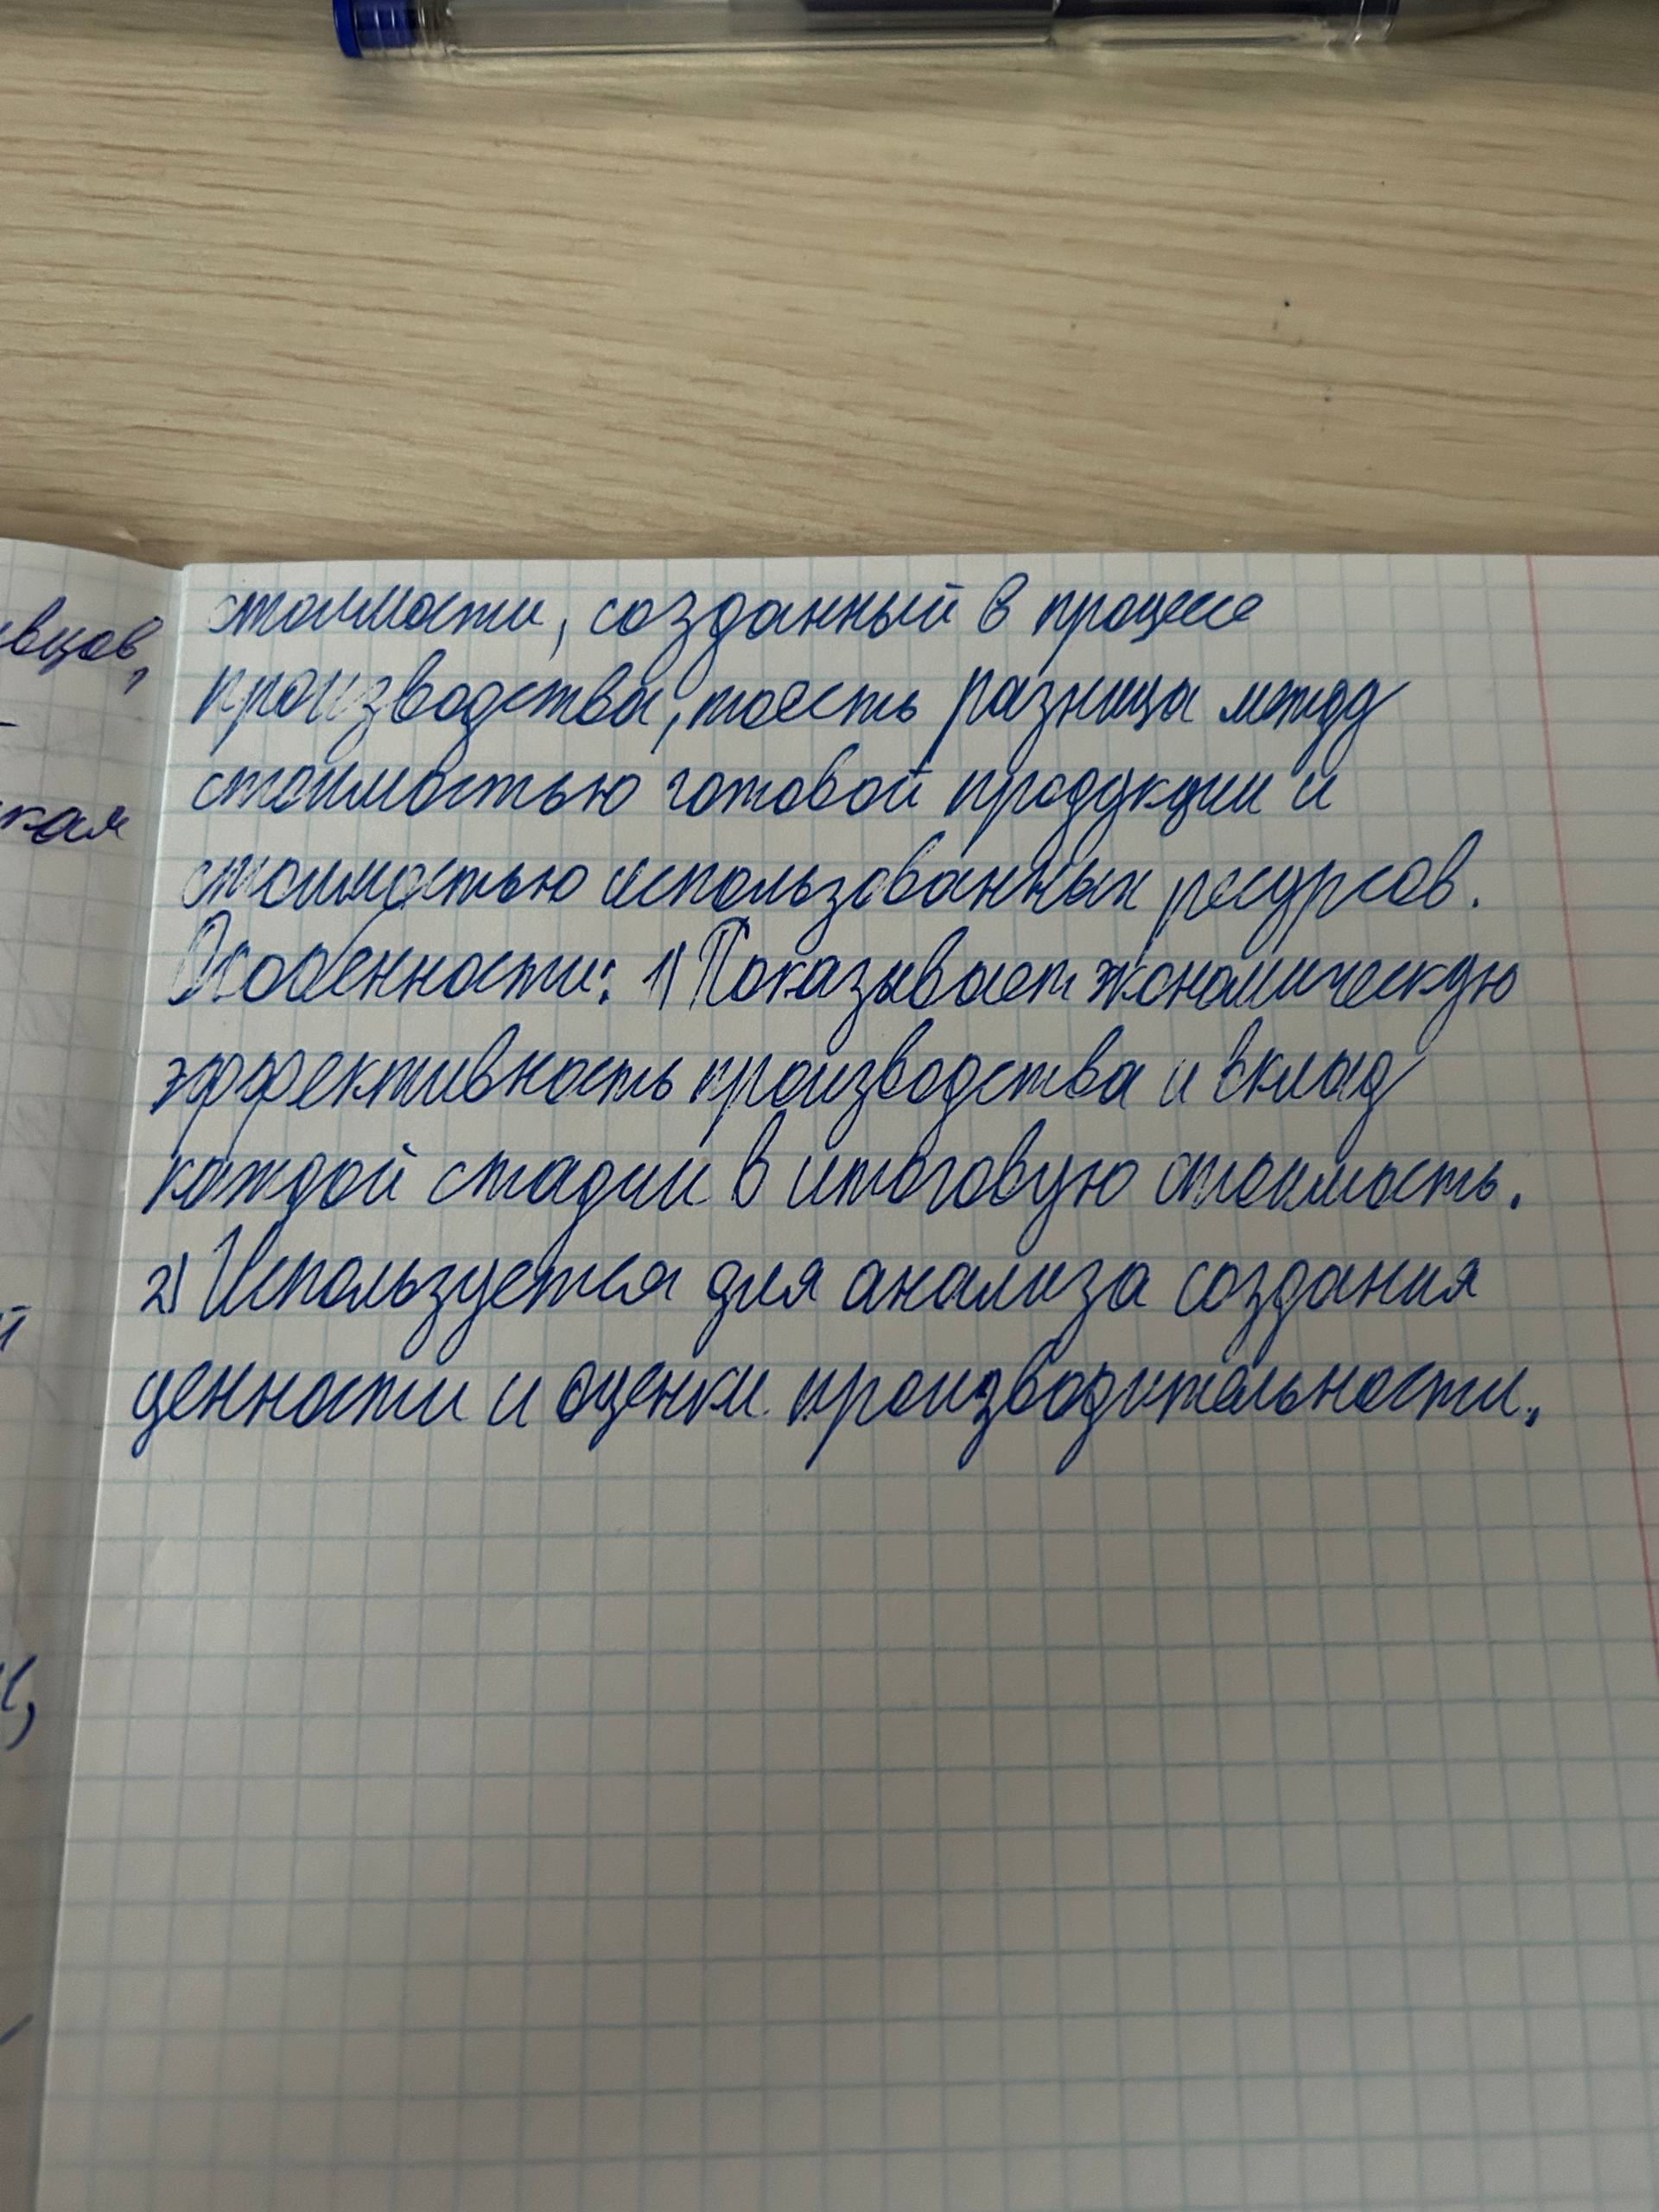 вцов,
стоимости, созданный в процессе
производства, тоесть разница между
кая
стоимостью готовой продукции и
стоимостью использованных ресурсов.
Особенности: 1) Показывает экономическую
эффективность производства и вклад
каждой стадии в итоговую стоимость.
2) Используется для анализа создания
ценности и оценки производительности.